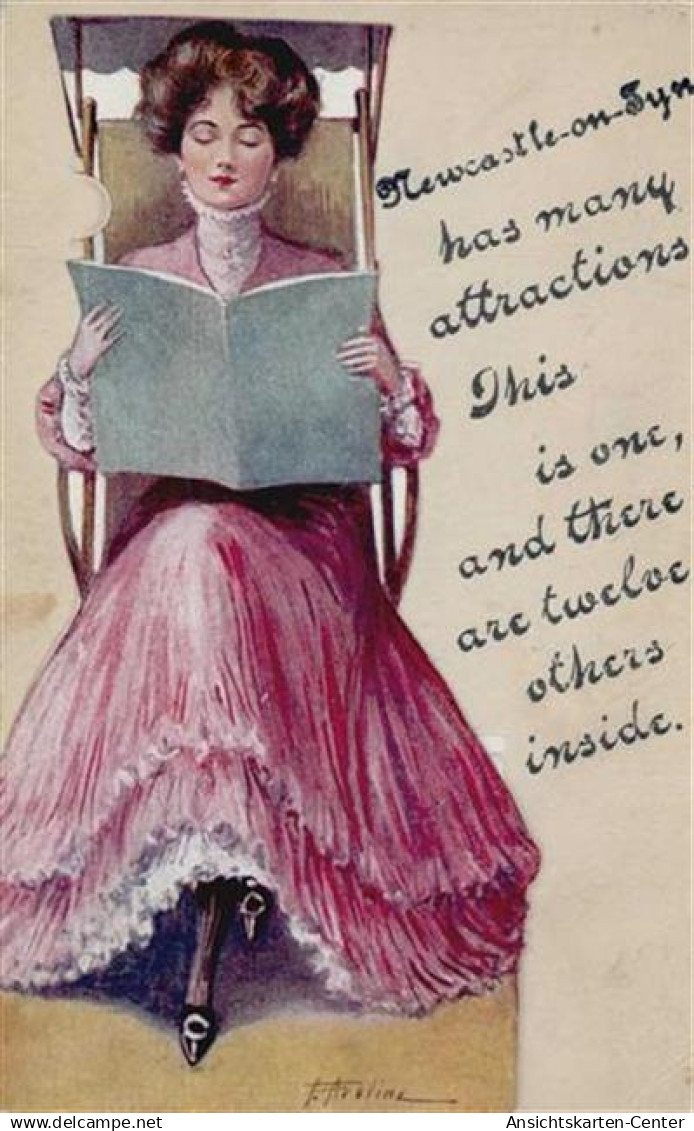 Newcastle-on-Tyn
has many
attractions
This
is one,
and there
are twelve
others
inside.
Ansichtskarten-Center